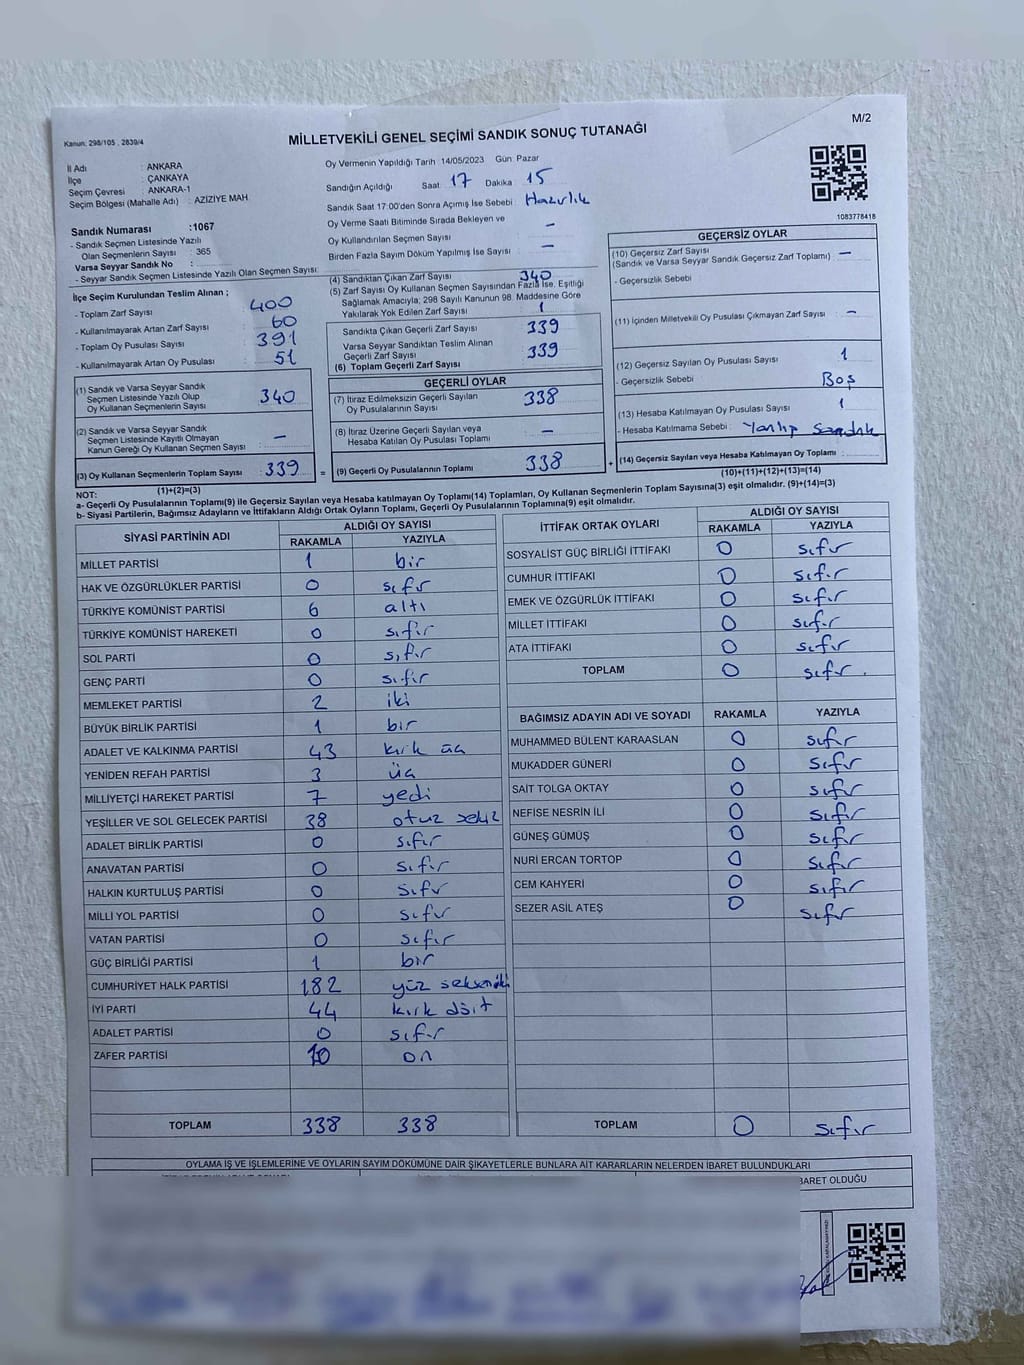 M/2
Kanun: 298/105 , 2839/4
MİLLETVEKİLİ GENEL SEÇİMİ SANDIK SONUÇ TUTANAĞI
İl Adı : ANKARA
İlçe : ÇANKAYA
Seçim Çevresi : ANKARA-1
Seçim Bölgesi (Mahalle Adı) : AZİZİYE MAH
Sandık Numarası :1067
- Sandık Seçmen Listesinde Yazılı
Olan Seçmenlerin Sayısı : 365
Varsa Seyyar Sandık No :
- Seyyar Sandık Seçmen Listesinde Yazılı Olan Seçmen Sayısı:
Oy Vermenin Yapıldığı Tarih 14/05/2023 Gün Pazar
Sandığın Açıldığı Saat 17 Dakika 15
Sandık Saat 17:00'den Sonra Açımış İse Sebebi : Hazırlık
Oy Verme Saati Bitiminde Sırada Bekleyen ve
Oy Kullandırılan Seçmen Sayısı : –
Birden Fazla Sayım Döküm Yapılmış İse Sayısı : –
1083778418
İlçe Seçim Kurulundan Teslim Alınan ;
- Toplam Zarf Sayısı : 400
- Kullanılmayarak Artan Zarf Sayısı : 60
- Toplam Oy Pusulası Sayısı : 391
- Kullanılmayarak Artan Oy Pusulası : 51
(1) Sandık ve Varsa Seyyar Sandık
Seçmen Listesinde Yazılı Olup
Oy Kullanan Seçmenlerin Sayısı : 340
(2) Sandık ve Varsa Seyyar Sandık
Seçmen Listesinde Kayıtlı Olmayan
Kanun Gereği Oy Kullanan Seçmen Sayısı : –
(3) Oy Kullanan Seçmenlerin Toplam Sayısı : 339
(1)+(2)=(3)
(4) Sandıktan Çıkan Zarf Sayısı : 340
(5) Zarf Sayısı Oy Kullanan Seçmen Sayısından Fazla İse, Eşitliği
Sağlamak Amacıyla; 298 Sayılı Kanunun 98. Maddesine Göre
Yakılarak Yok Edilen Zarf Sayısı : 1
Sandıkta Çıkan Geçerli Zarf Sayısı : 339
Varsa Seyyar Sandıktan Teslim Alınan
Geçerli Zarf Sayısı : 339
(6) Toplam Geçerli Zarf Sayısı :
GEÇERLİ OYLAR
(7) İtiraz Edilmeksizin Geçerli Sayılan
Oy Pusulalarının Sayısı : 338
(8) İtiraz Üzerine Geçerli Sayılan veya
Hesaba Katılan Oy Pusulası Toplamı : –
= (9) Geçerli Oy Pusulalarının Toplamı : 338 +
GEÇERSİZ OYLAR
(10) Geçersiz Zarf Sayısı
(Sandık ve Varsa Seyyar Sandık Geçersiz Zarf Toplamı) : –
- Geçersizlik Sebebi
(11) İçinden Milletvekili Oy Pusulası Çıkmayan Zarf Sayısı : –
(12) Geçersiz Sayılan Oy Pusulası Sayısı : 1
- Geçersizlik Sebebi : Boş
(13) Hesaba Katılmayan Oy Pusulası Sayısı : 1
- Hesaba Katılmama Sebebi : Yanlış Sandık
(14) Geçersiz Sayılan veya Hesaba Katılmayan Oy Toplamı :
(10)+(11)+(12)+(13)=(14)
NOT:
a- Geçerli Oy Pusulalarının Toplamı(9) ile Geçersiz Sayılan veya Hesaba katılmayan Oy Toplamı(14) Toplamları, Oy Kullanan Seçmenlerin Toplam Sayısına(3) eşit olmalıdır. (9)+(14)=(3)
b- Siyasi Partilerin, Bağımsız Adayların ve İttifakların Aldığı Ortak Oyların Toplamı, Geçerli Oy Pusulalarının Toplamına(9) eşit olmalıdır.
SİYASİ PARTİNİN ADI ALDIĞI OY SAYISI
RAKAMLA YAZIYLA
MİLLET PARTİSİ 1 bir
HAK VE ÖZGÜRLÜKLER PARTİSİ 0 sıfır
TÜRKİYE KOMÜNİST PARTİSİ 6 altı
TÜRKİYE KOMÜNİST HAREKETİ 0 sıfır
SOL PARTİ 0 sıfır
GENÇ PARTİ 0 sıfır
MEMLEKET PARTİSİ 2 iki
BÜYÜK BİRLİK PARTİSİ 1 bir
ADALET VE KALKINMA PARTİSİ 43 kırk üç
YENİDEN REFAH PARTİSİ 3 üç
MİLLİYETÇİ HAREKET PARTİSİ 7 yedi
YEŞİLLER VE SOL GELECEK PARTİSİ 38 otuz sekiz
ADALET BİRLİK PARTİSİ 0 sıfır
ANAVATAN PARTİSİ 0 sıfır
HALKIN KURTULUŞ PARTİSİ 0 sıfır
MİLLİ YOL PARTİSİ 0 sıfır
VATAN PARTİSİ 0 sıfır
GÜÇ BİRLİĞİ PARTİSİ 1 bir
CUMHURİYET HALK PARTİSİ 182 yüz seksen iki
İYİ PARTİ 44 kırk dört
ADALET PARTİSİ 0 sıfır
ZAFER PARTİSİ 10 on
TOPLAM 338 338
İTTİFAK ORTAK OYLARI ALDIĞI OY SAYISI
RAKAMLA YAZIYLA
SOSYALİST GÜÇ BİRLİĞİ İTTİFAKI 0 sıfır
CUMHUR İTTİFAKI 0 sıfır
EMEK VE ÖZGÜRLÜK İTTİFAKI 0 sıfır
MİLLET İTTİFAKI 0 sıfır
ATA İTTİFAKI 0 sıfır
TOPLAM 0 sıfır
BAĞIMSIZ ADAYIN ADI VE SOYADI RAKAMLA YAZIYLA
MUHAMMED BÜLENT KARAASLAN 0 sıfır
MUKADDER GÜNERİ 0 sıfır
SAİT TOLGA OKTAY 0 sıfır
NEFİSE NESRİN İLİ 0 sıfır
GÜNEŞ GÜMÜŞ 0 sıfır
NURİ ERCAN TORTOP 0 sıfır
CEM KAHYERİ 0 sıfır
SEZER ASİL ATEŞ 0 sıfır
TOPLAM 0 sıfır
OYLAMA İŞ VE İŞLEMLERİNE VE OYLARIN SAYIM DÖKÜMÜNE DAİR ŞİKAYETLERLE BUNLARA AİT KARARLARIN NELERDEN İBARET BULUNDUKLARI
BARET OLDUĞU